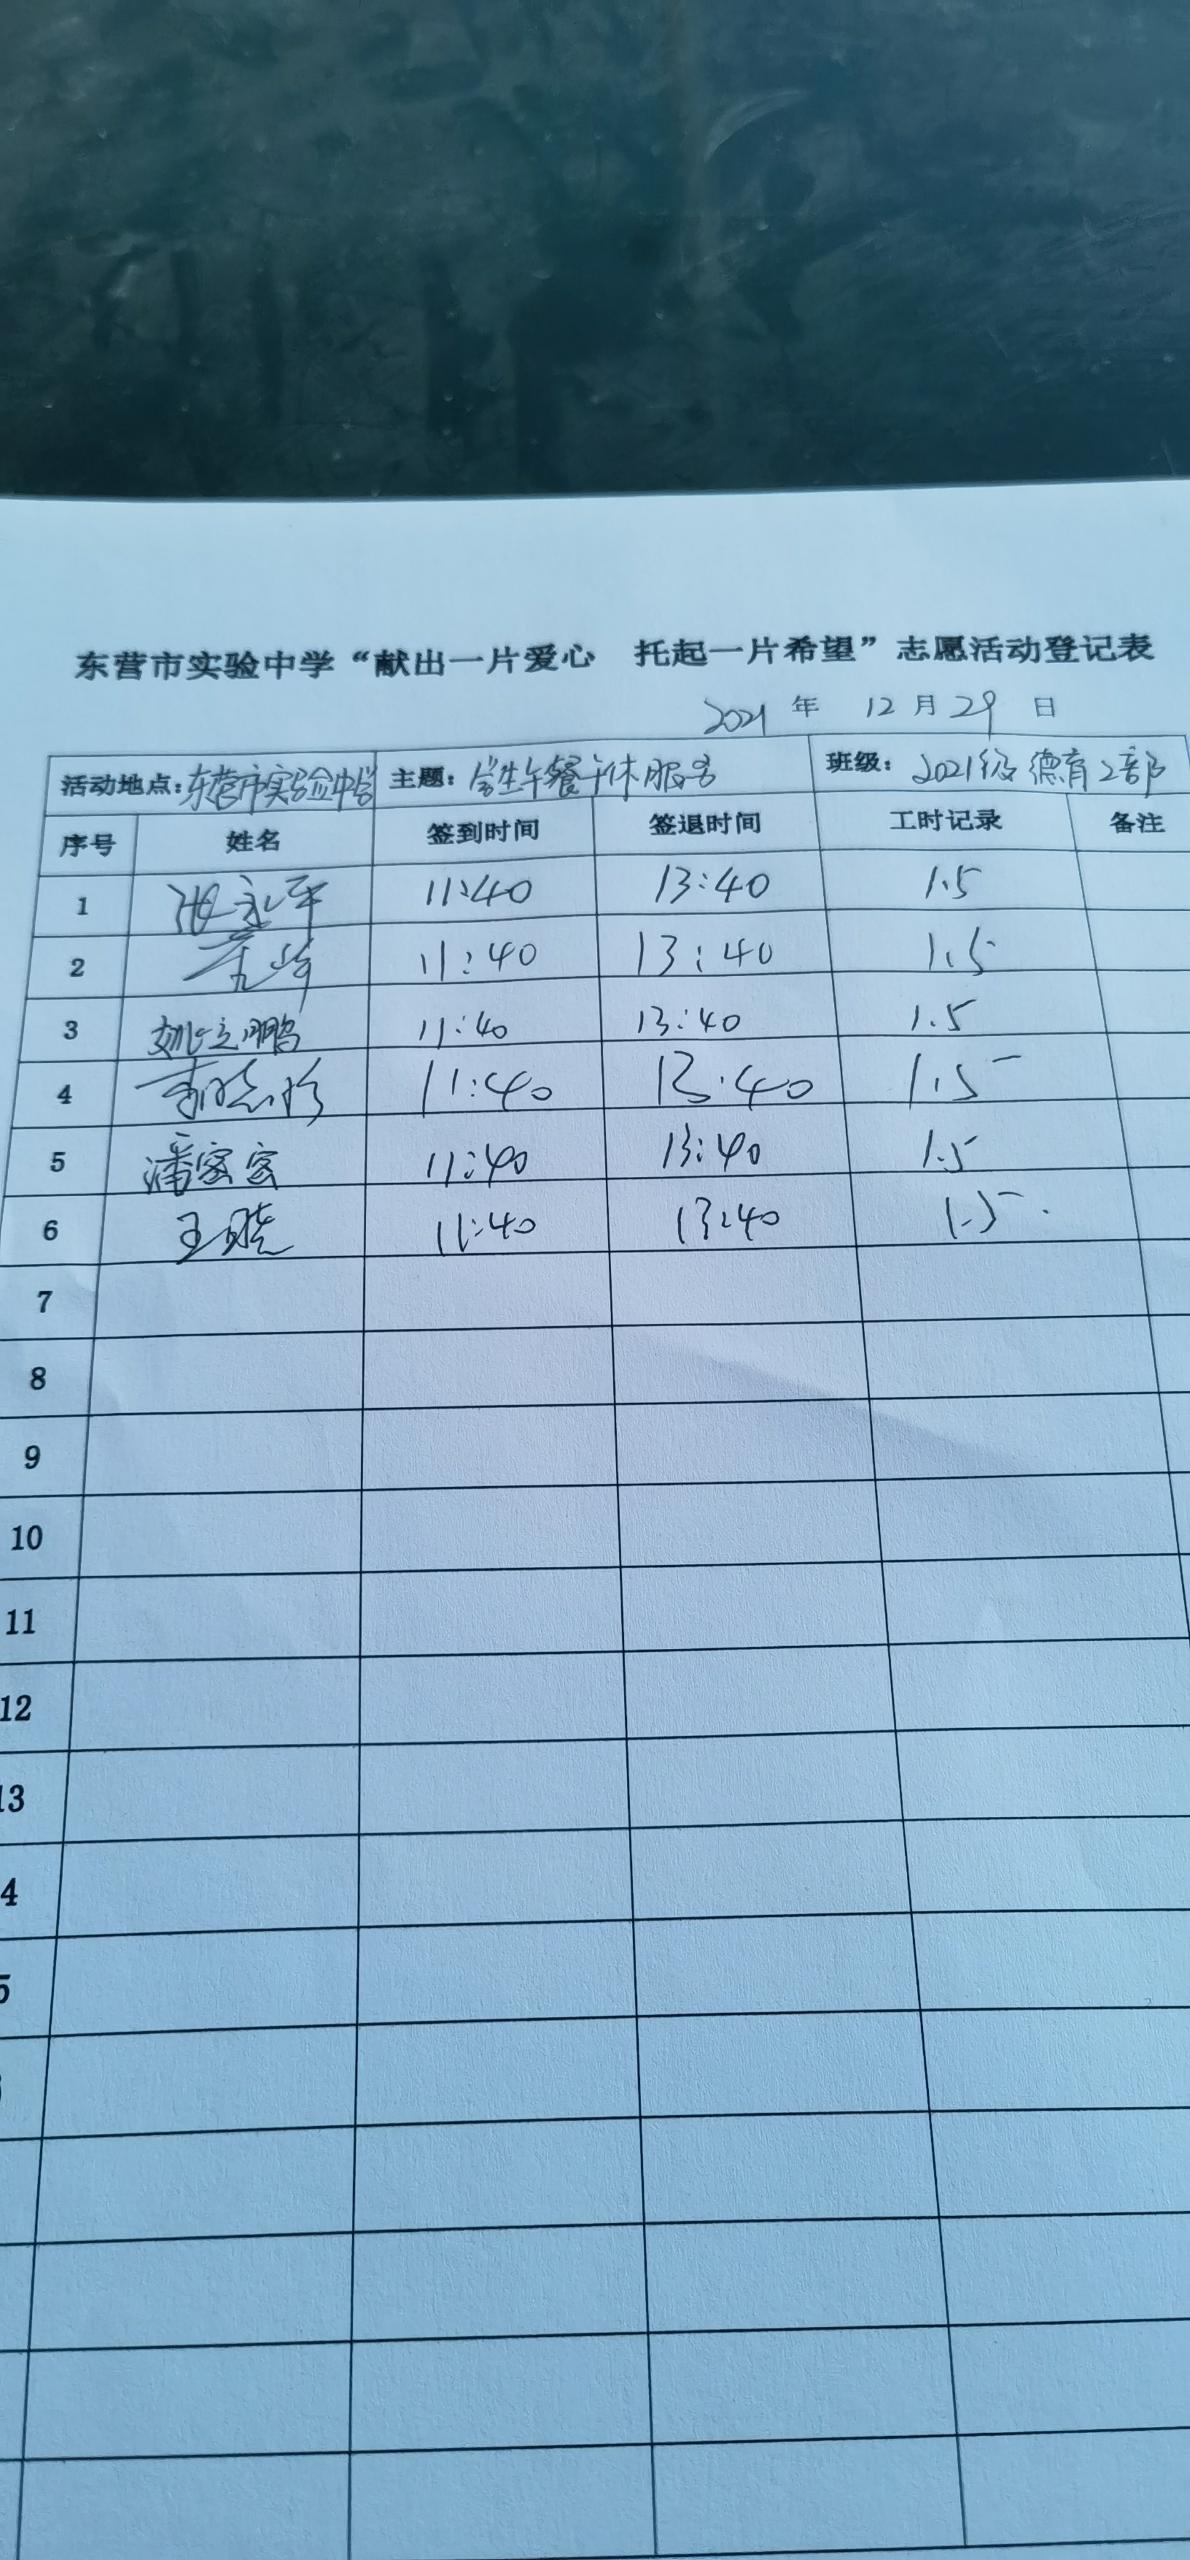 东营市实验中学“献出一片爱心 托起一片希望”志愿活动登记表
2021 年 12 月 29 日
活动地点：东营市实验中学 主题：学生午餐午休服务 班级：2021级德育2部
序号 姓名 签到时间 签退时间 工时记录 备注
1 张永平 11:40 13:40 1.5
2 11:40 13:40 1.5
3 姚立鹏 11:40 13:40 1.5
4 11:40 13:40 1.5
5 潘密密 11:40 13:40 1.5
6 王晓 11:40 13:40 1.5
7
8
9
10
11
12
13
4
5